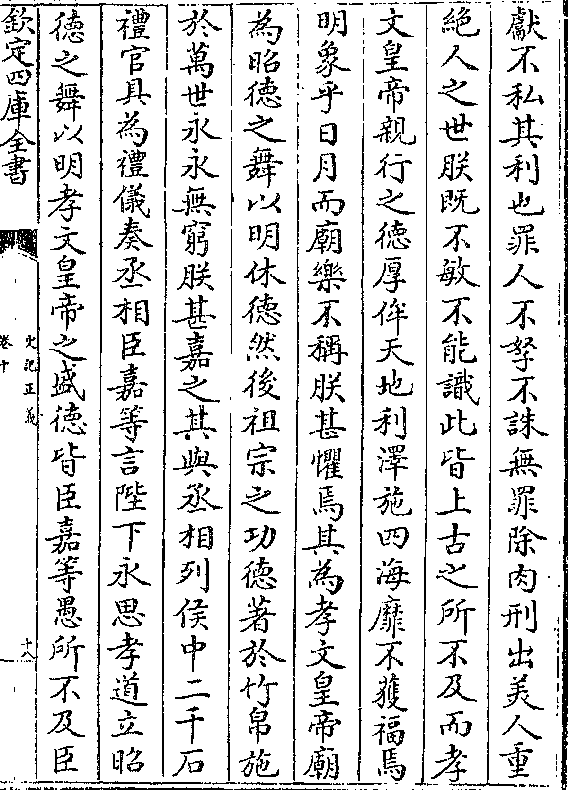 獻不私其利也罪人不孥不誅無罪除肉刑出美人重
絕人之世朕既不敏不能識此皆上古之所不及而孝
文皇帝親行之德厚侔天地利澤施四海靡不獲福焉
明象乎日月而廟樂不稱朕甚懼焉其為孝文皇帝廟
為昭德之舞以明休德然後祖宗之功德著於竹帛施
於萬世永永無窮朕甚嘉之其與丞相列侯中二千石
禮官具為禮儀奏丞相臣嘉等言陛下永思孝道立昭
德之舞以明孝文皇帝之盛德皆臣嘉等愚所不及臣
欽定四庫全書
史記正義
卷十
十八